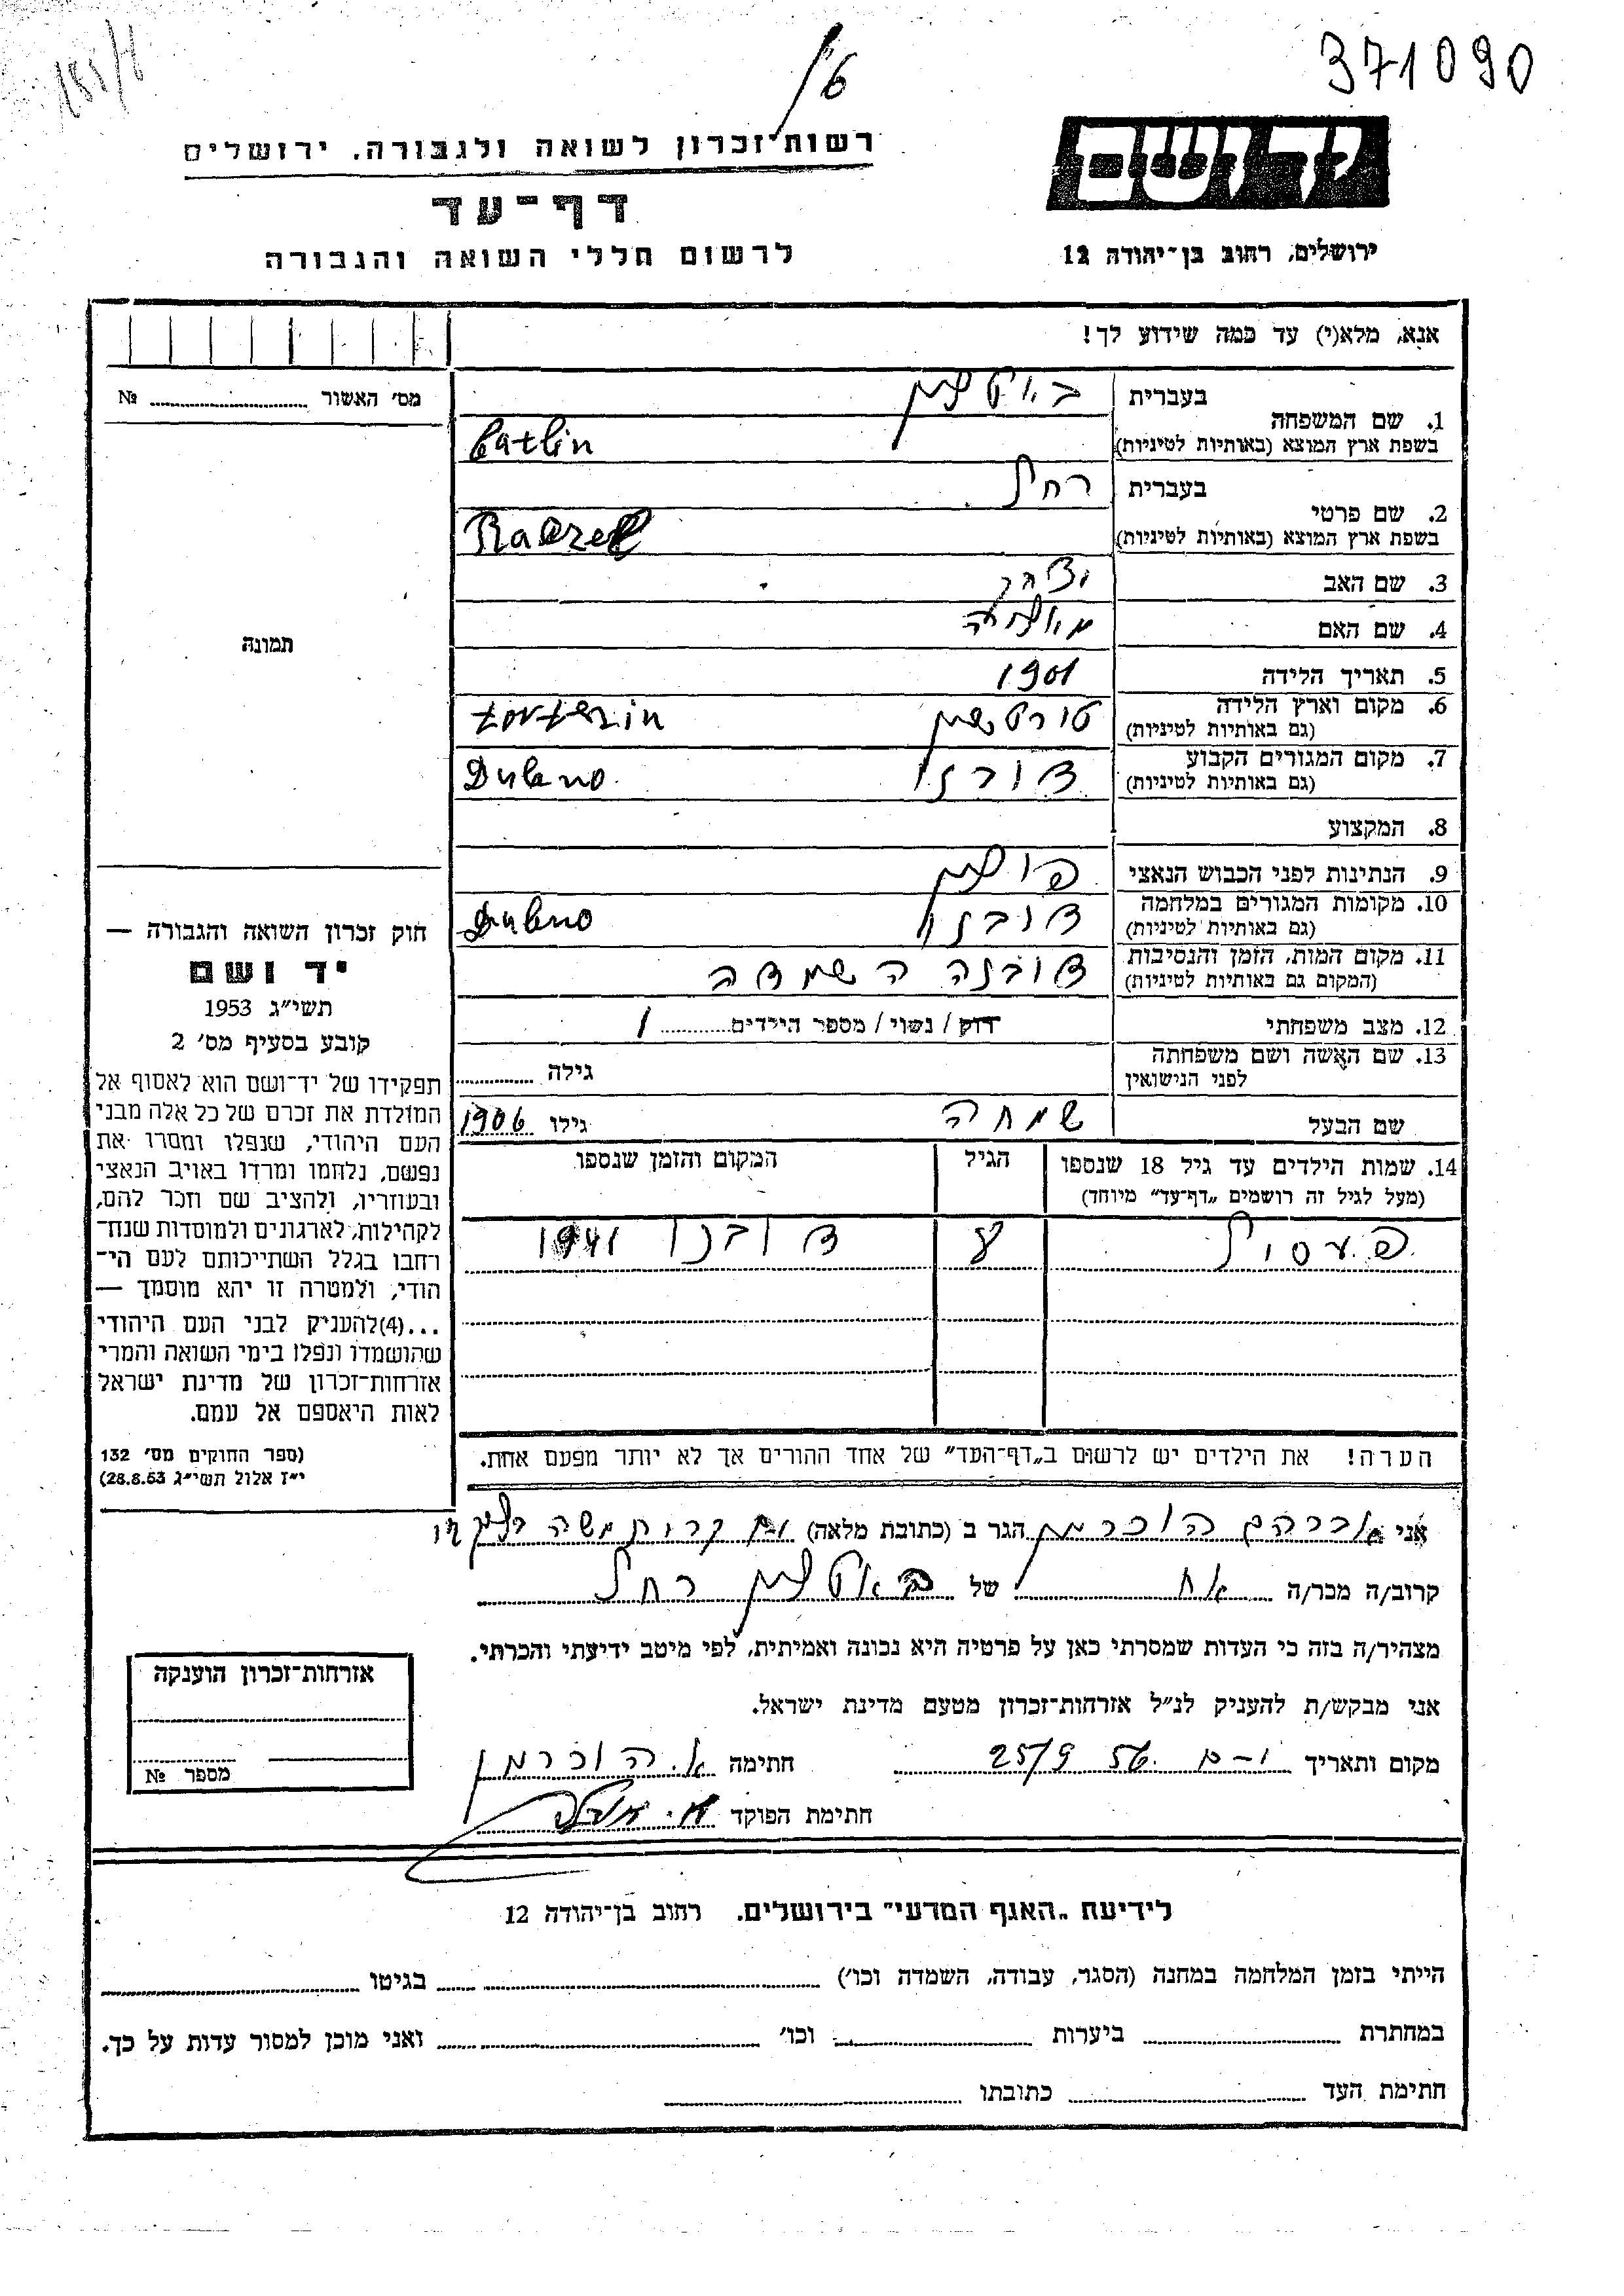 371090
6/
185/6
יד ושם
ירושלים, רחוב בן־יהודה 12
רשות־זכרון לשואה ולגבורה, ירושלים
דף־עד
לרשום חללי השואה והגבורה
אנא, מלא(י) עד כמה שידוע לך!
1. שם המשפחה
בעברית
בשפת ארץ המוצא (באותיות לטיניות) Batlin
2. שם פרטי
בעברית רחל
בשפת ארץ המוצא (באותיות לטיניות)
3. שם האב
4. שם האם
5. תאריך הלידה 1901
6. מקום וארץ הלידה
(גם באותיות לטיניות)
7. מקום המגורים הקבוע Dubno
(גם באותיות לטיניות)
8. המקצוע
9. הנתינות לפני הכבוש הנאצי פולין
10. מקומות המגורים במלחמה דובנו Dubno
(גם באותיות לטיניות)
11. מקום המות, הזמן והנסיבות דובנה השמדה
(המקום גם באותיות לטיניות)
12. מצב משפחתי רוק / נשוי / מספר הילדים 1
13. שם האשה ושם משפחתה גילה
לפני הנישואין
שם הבעל שמחה גילו 1906
14. שמות הילדים עד גיל 18 שנספו הגיל המקום והזמן שנספו
(מעל לגיל זה רושמים „דף־עד" מיוחד)
דובנו 1941
הערה! את הילדים יש לרשום ב„דף־העד" של אחד ההורים אך לא יותר מפעם אחת.
אני אברהם הוכרמן הגר ב (כתובת מלאה)
קרוב/ה מכר/ה אח של רחל
מצהיר/ה בזה כי העדות שמסרתי כאן על פרטיה היא נכונה ואמיתית, לפי מיטב ידיעתי והכרתי.
אני מבקש/ת להעניק לנ"ל אזרחות־זכרון מטעם מדינת ישראל.
מקום ותאריך 25/9 56 חתימה א. הוכרמן
חתימת הפוקד
מס׳ האשור № 
תמונה
חוק זכרון השואה והגבורה —
יד ושם
תשי"ג 1953
קובע בסעיף מס׳ 2
תפקידו של יד־ושם הוא לאסוף אל
המולדת את זכרם של כל אלה מבני
העם היהודי, שנפלו ומסרו את
נפשם, נלחמו ומרדו באויב הנאצי
ובעוזריו, ולהציב שם וזכר להם,
לקהילות, לארגונים ולמוסדות שנח־
רחבו בגלל השתייכותם לעם הי־
הודי, ולמטרה זו יהא מוסמך —
...(4)להעניק לבני העם היהודי
שהושמדו ונפלו בימי השואה והמרי
אזרחות־זכרון של מדינת ישראל
לאות היאספם אל עמם.
(ספר החוקים מס׳ 132
י"ז אלול תשי"ג 28.8.53)
אזרחות־זכרון הוענקה
מספר №
לידיעת „האגף המדעי" בירושלים, רחוב בן־יהודה 12
הייתי בזמן המלחמה במחנה (הסגר, עבודה, השמדה וכו׳) בגיטו
במחתרת ביערות וכו׳ ואני מוכן למסור עדות על כך.
חתימת העד כתובתו